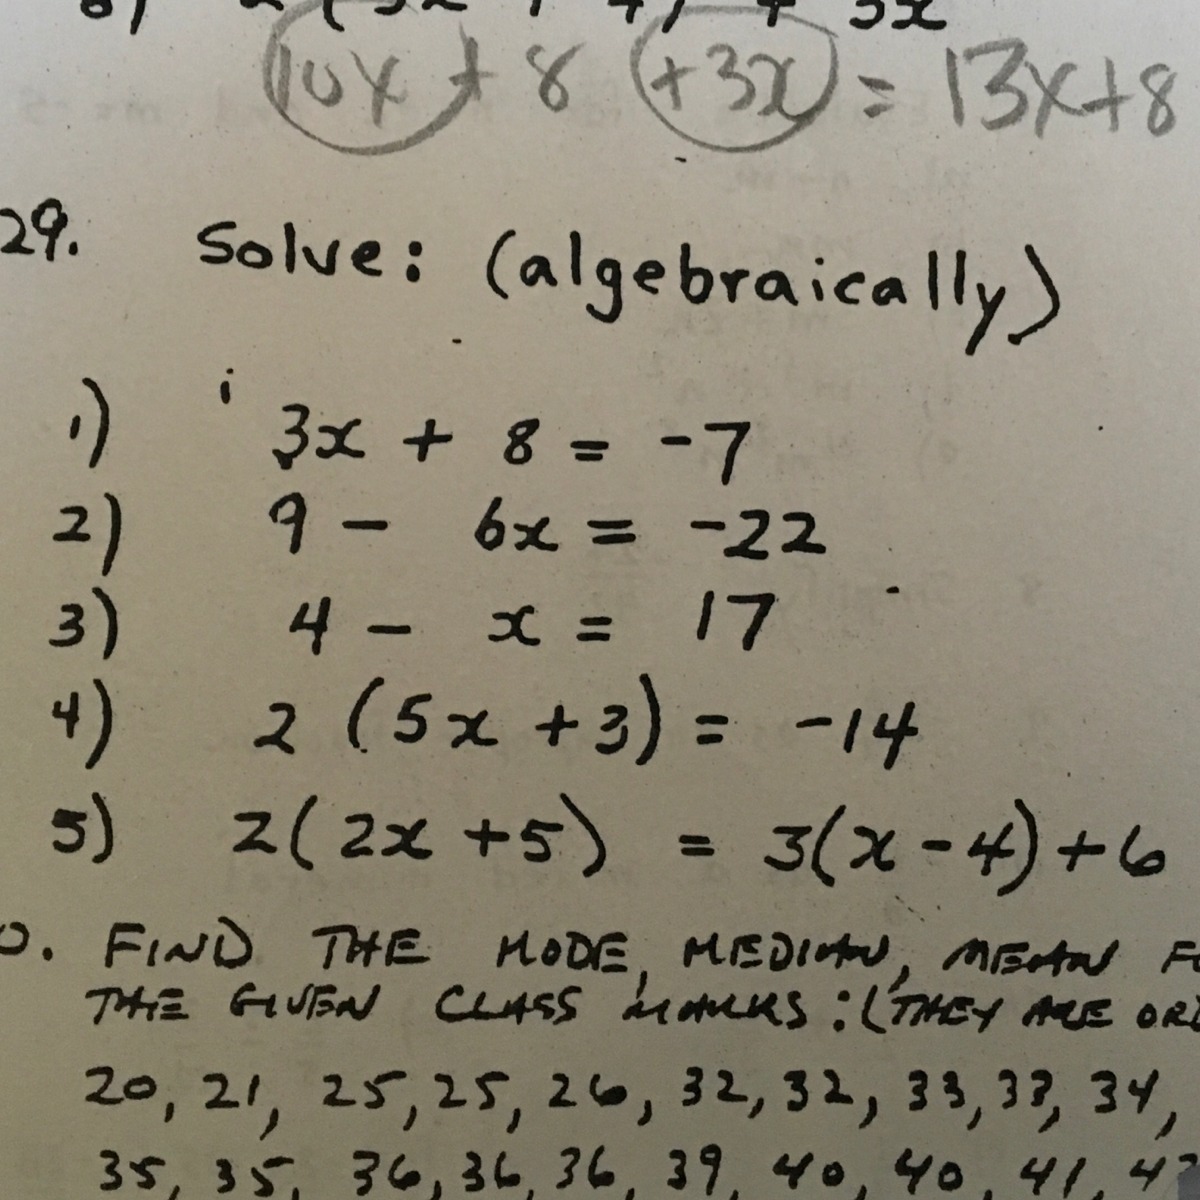 + 3x
10x + 8 +3x = 13x+8
29. Solve: (algebraically)
1) 3x + 8 = -7
2) 9 - 6x = -22
3) 4 - x = 17
4) 2 (5x +3) = -14
5) 2(2x +5) = 3(x-4)+6
0. FIND THE MODE, MEDIAN, MEAN
THE GIVEN CLASS MARKS: (THEY ARE
20, 21, 25, 25, 26, 32, 32, 33, 33, 34,
35, 35, 36, 36, 36, 39, 40, 40, 41,